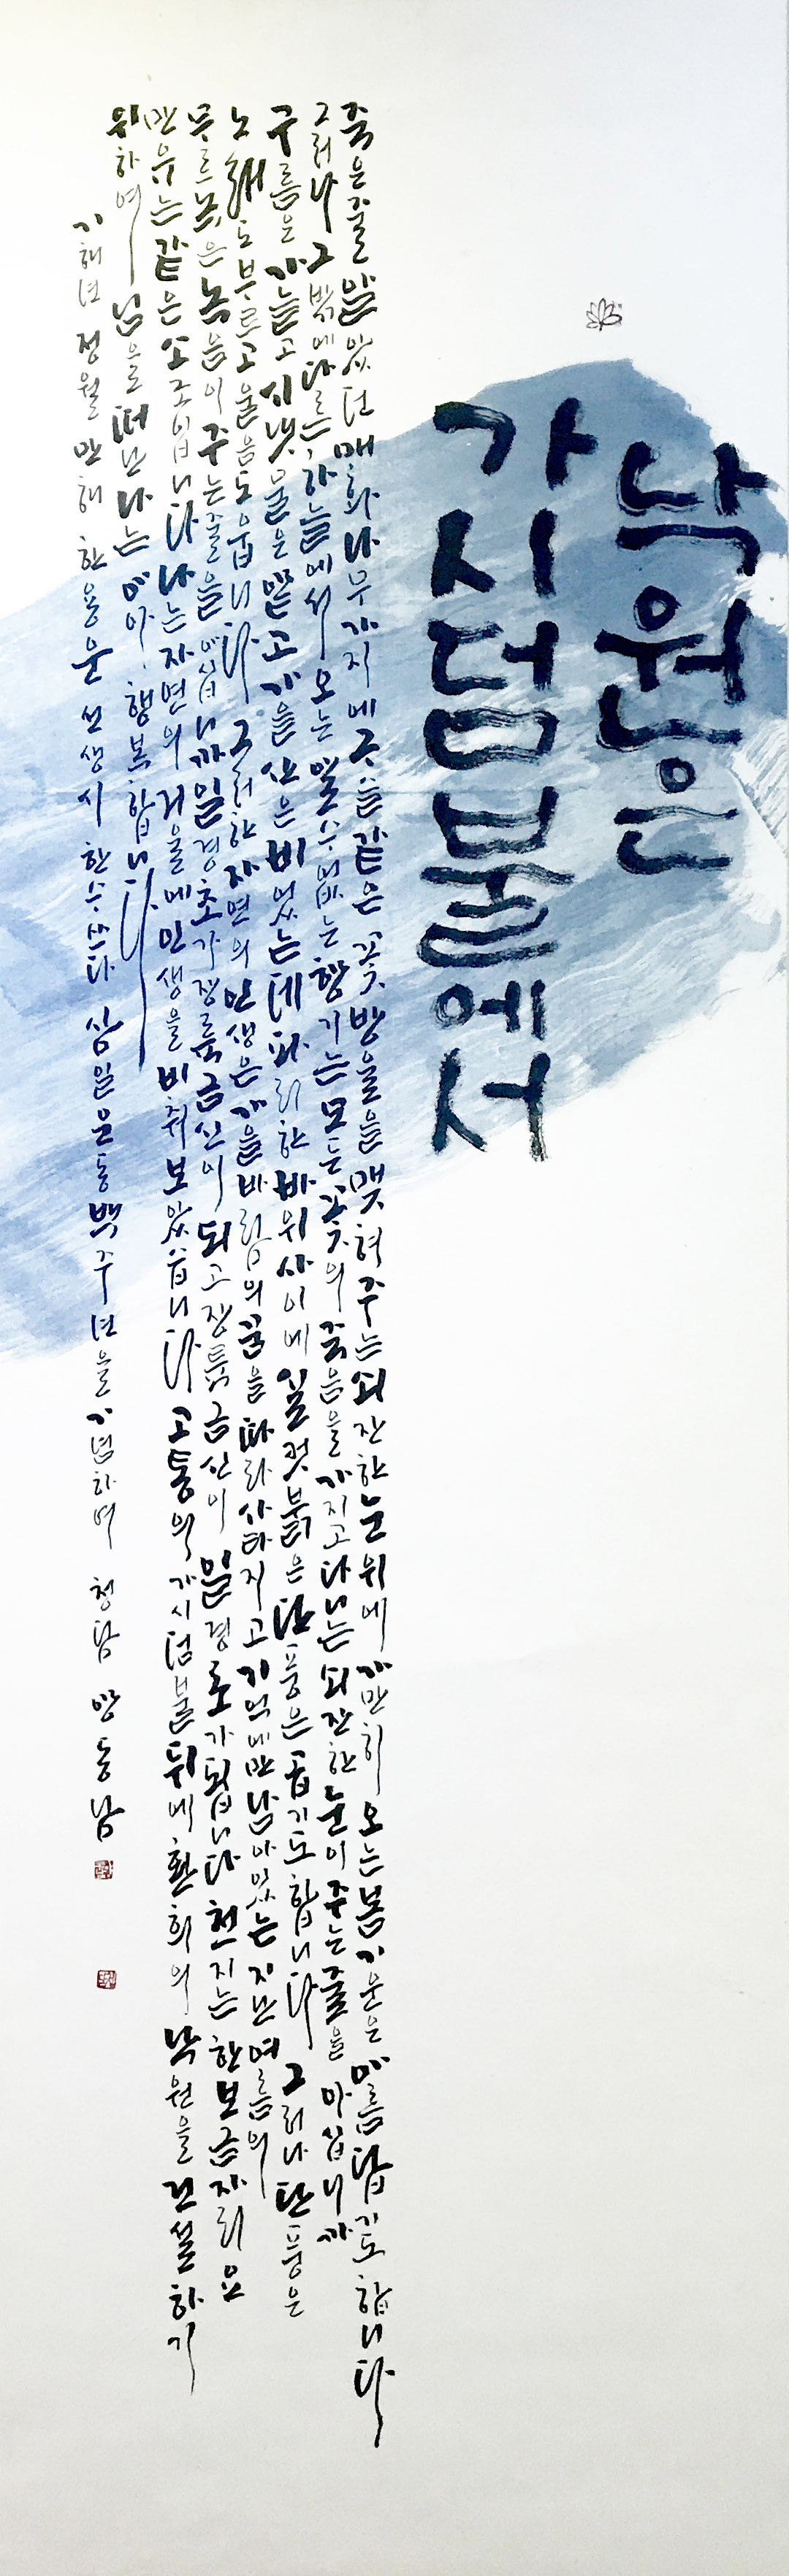 낙원은
가시덤불에서
죽은줄 알았던 매화나무가지에 구슬같은 꽃방울을 맺혀주는 쇠잔한 눈위에 가만히 오는 봄기운은 아름답기도 합니다
그러나 그밖에 다른 하늘에서 오는 알수없는 향기는 모든 꽃의 죽음을 가지고 다니는 쇠잔한 눈이 주는줄을 아십니까
구름은 가늘고 시냇물은 얕고 가을산은 비었는데 파리한 바위사이에 실컷 붉은 단풍은 곱기도 합니다 그러나 단풍은
노래도 부르고 울음도 웁니다 그러한 자연의 인생은 가을바람의 꿈을 따라 사라지고 기억에만 남아있는 지난 여름의
무르녹은 녹음이 주는줄을 아십니까 일경초가 장륙금신이 되고 장륙금신이 일경초가 됩니다 천지는 한 보금자리요
만유는 같은 소조입니다 나는 자연의 거울에 인생을 비춰보았습니다 고통의 가시덤불 뒤에 환희의 낙원을 건설하기
위하여 님으로 떠난 나는 아아 행복합니다
기해년 정월 만해 한용운 선생 시 한수 쓰다 삼일운동 백주년을 기념하여